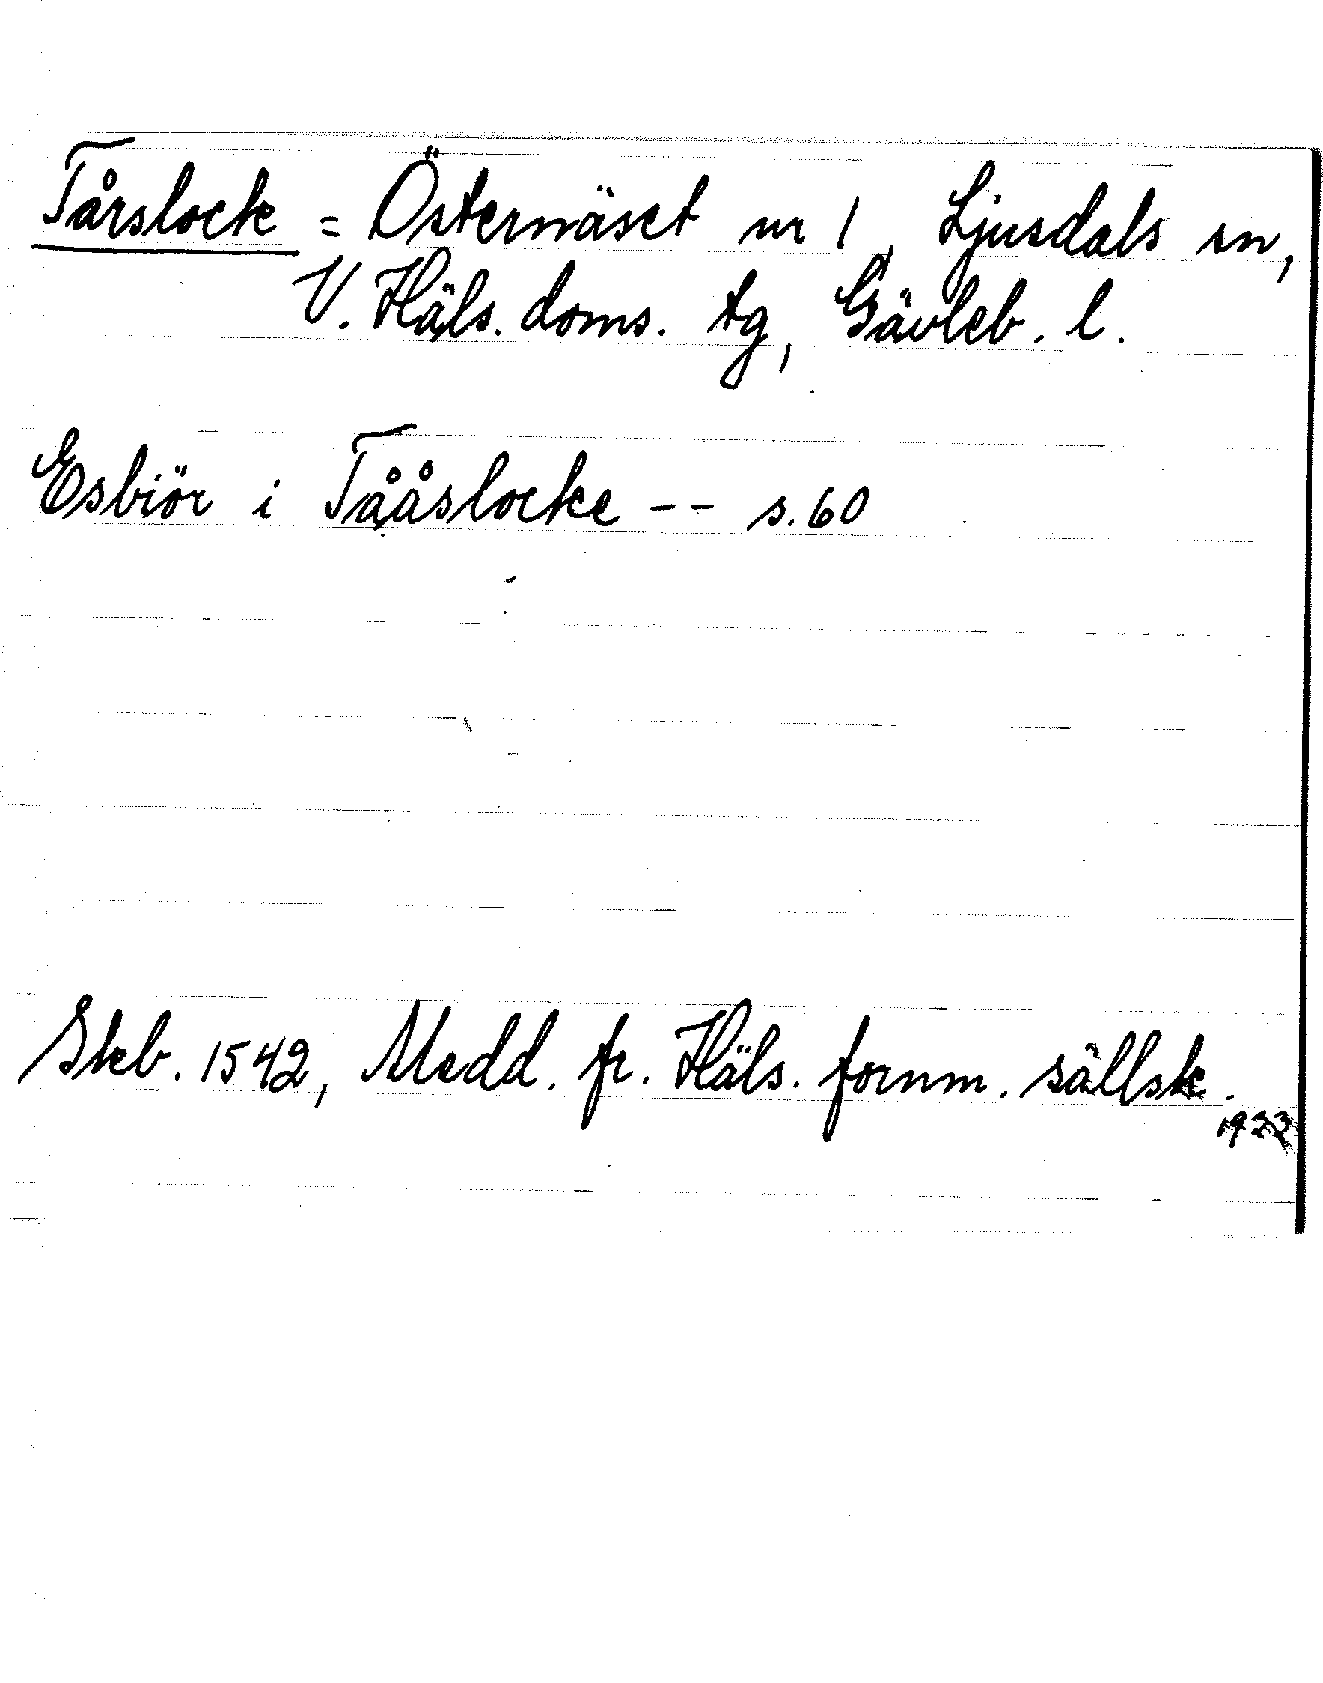 Tårslock = Östernäset nr 1, Ljusdals sn,
V. Häls. doms. tg, Gävleb. l.
Esbiör i Tååslocke -- s. 60
Skb. 1542, Medd. fr. Häls. fornm. sällsk.